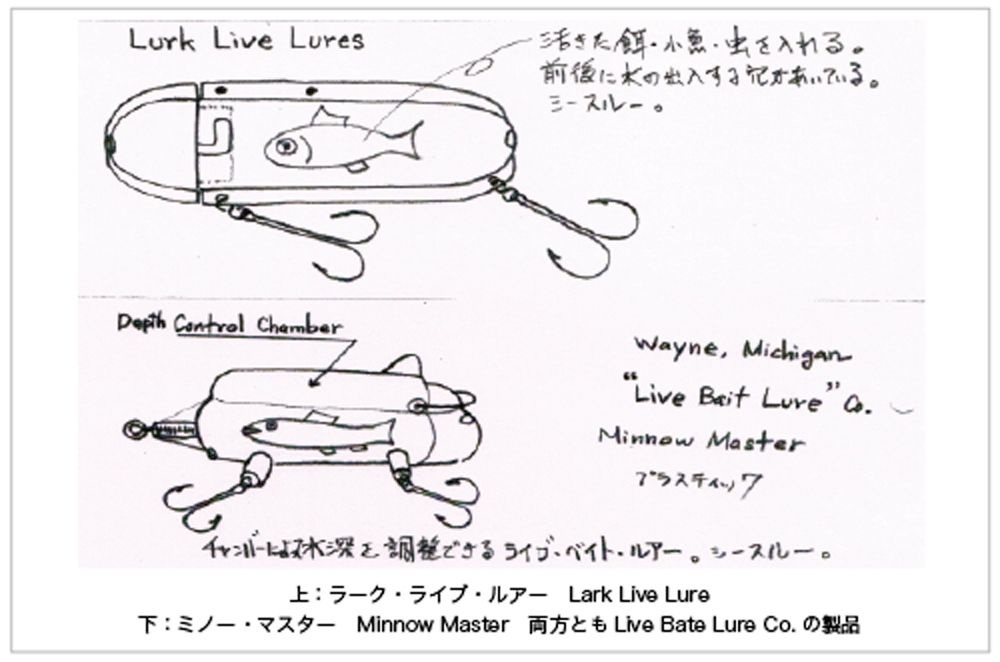 Lurk Live Lures
活きた餌・小魚・虫を入れる。
前後に水の出入する穴があいている。
シースルー。
Depth Control Chamber
Wayne, Michigan
"Live Bait Lure" Co.
Minnow Master
プラスティック
チャンバーによって水深を調整できるライブ・ベイト・ルアー。シースルー。
上：ラーク・ライブ・ルアー Lark Live Lure
下：ミノー・マスター Minnow Master 両方とも Live Bate Lure Co. の製品